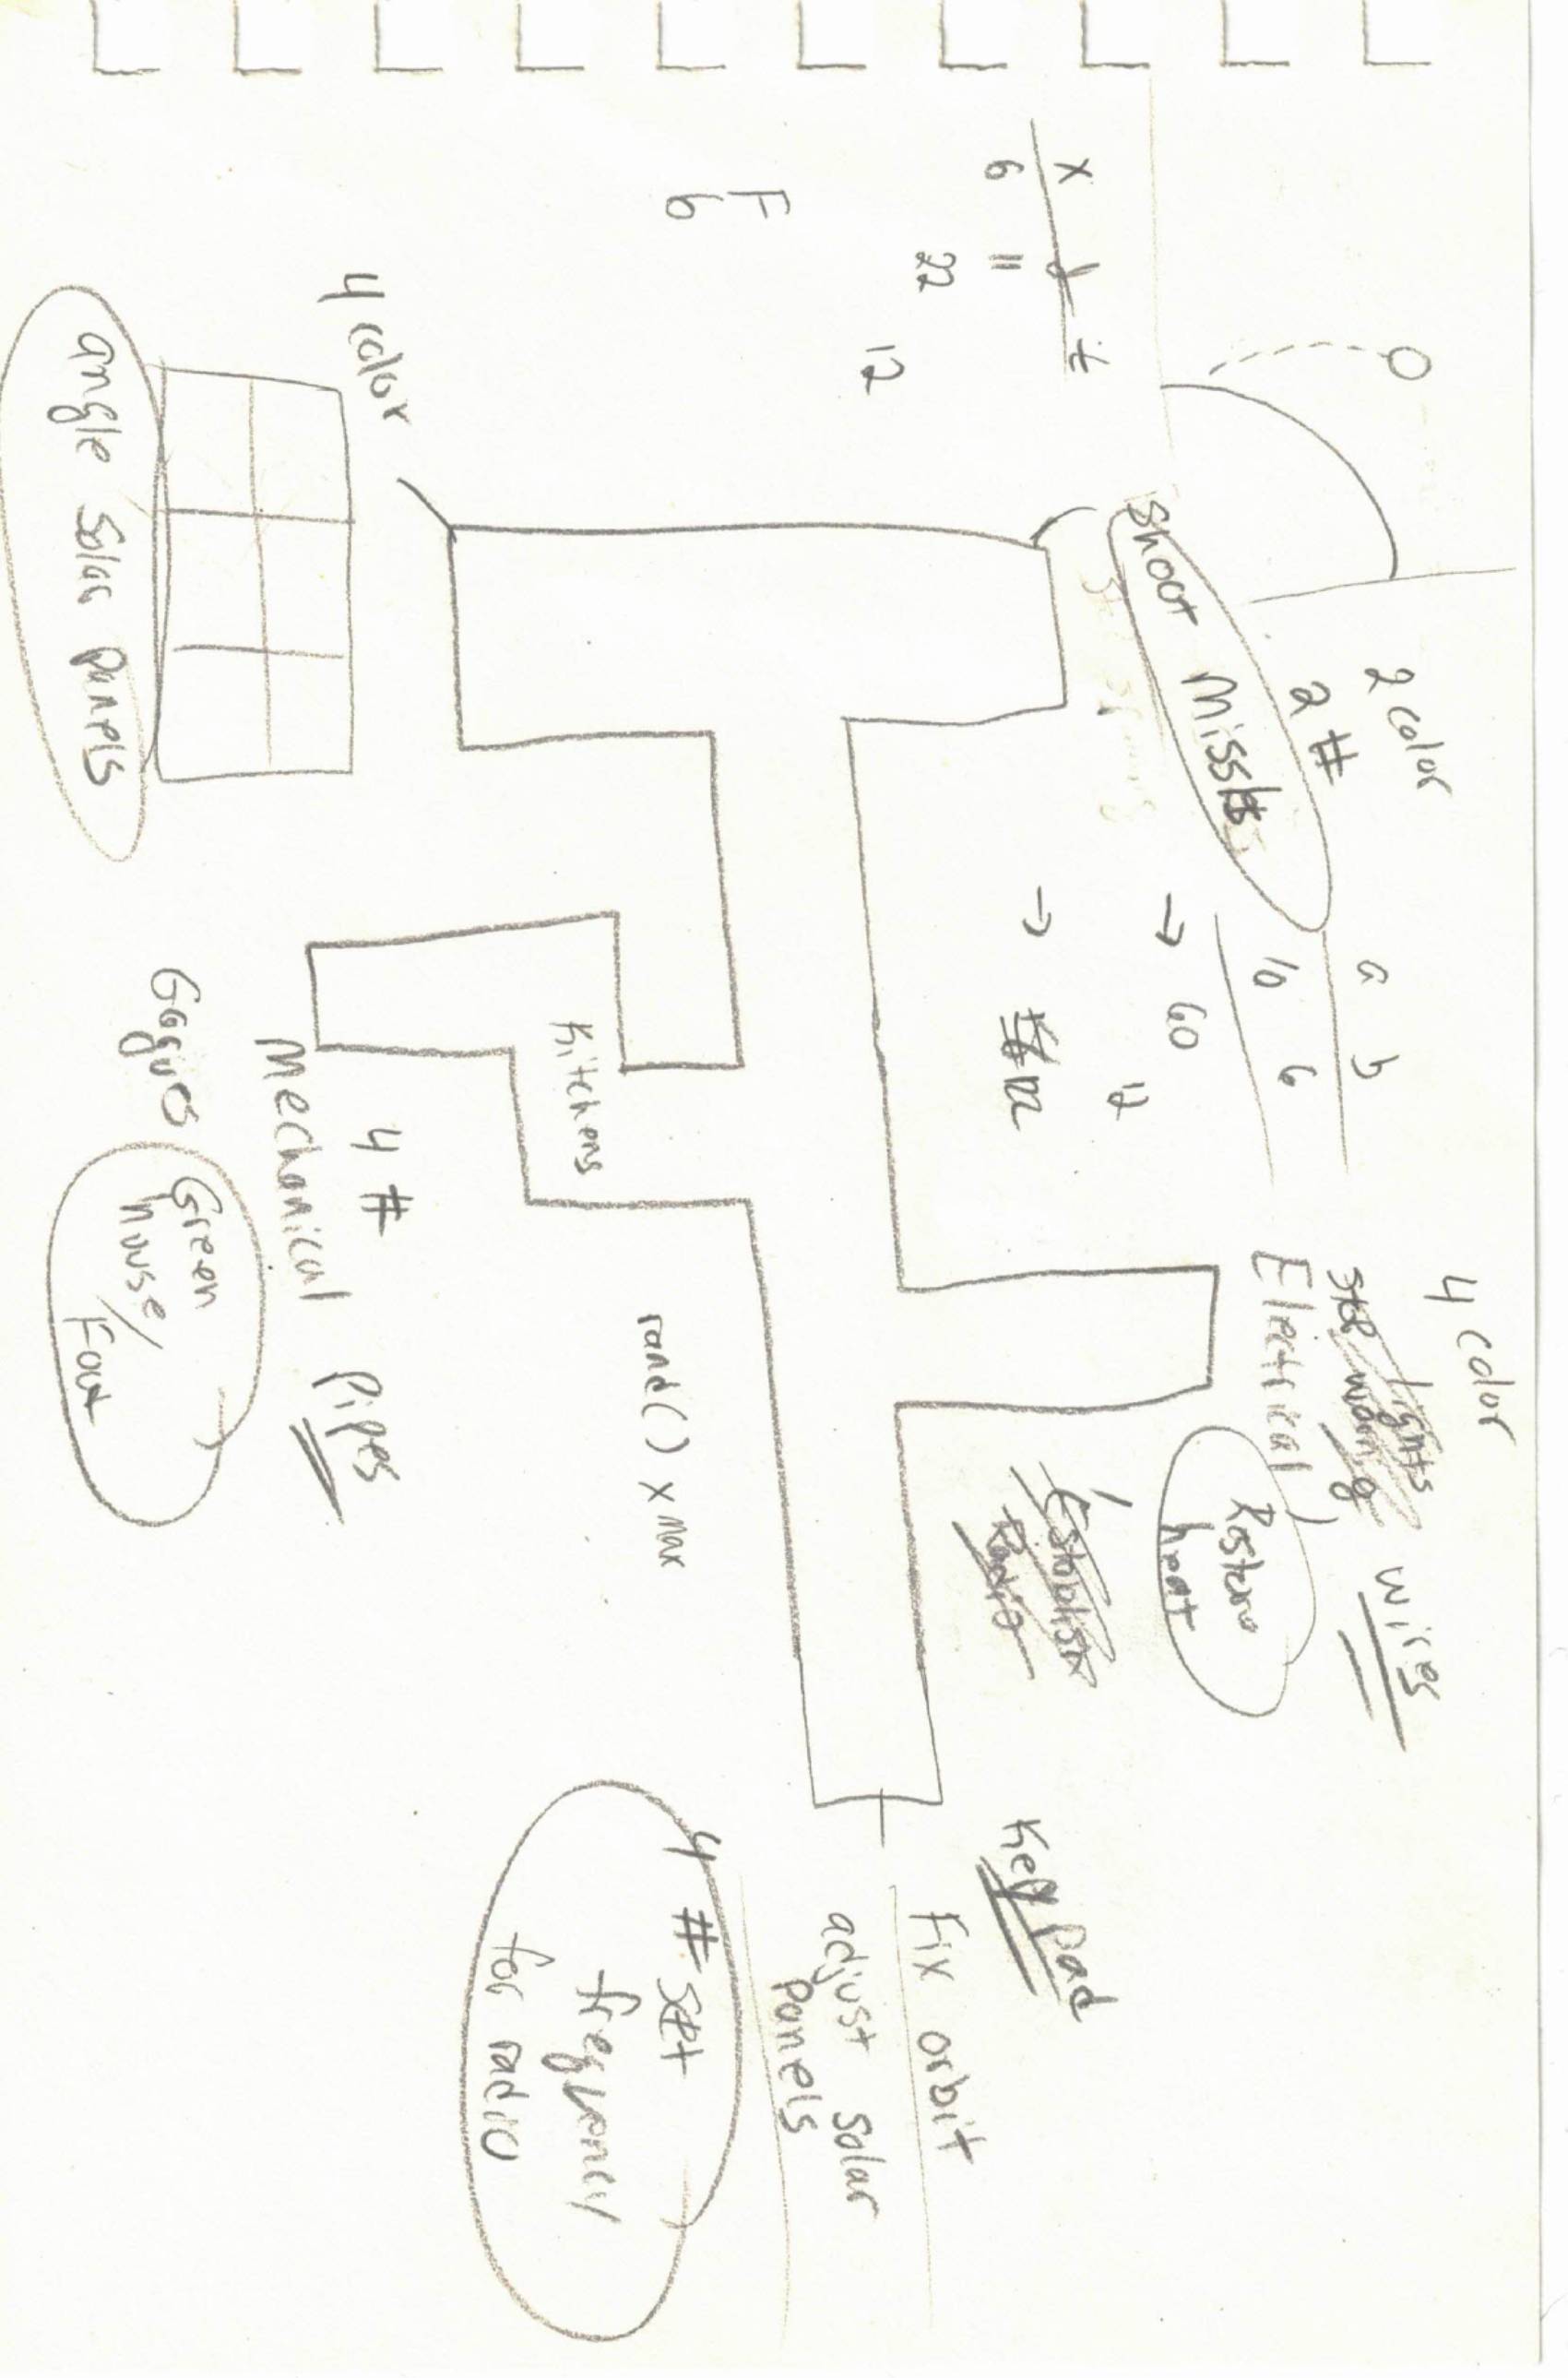 2 color
2 #
shoot Missles
a b
10 6
→ 60
12
→ 122
4 color
Electrical
wires
Restore
heat
Establish
Radio
x y z
6 11
22
12
F
6
4 color
angle solar panels
Kitchens
4 #
Mechanical
Pipes
Gagues
Green
house/
Food
rand() x max
Key pad
Fix orbit
adjust solar
panels
4 # set
frequency
for radio